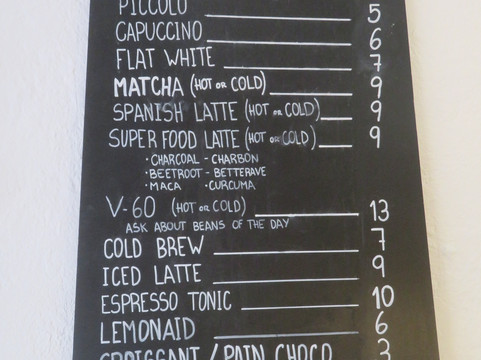 PICCOLO 5
CAPUCCINO 6
FLAT WHITE 7
MATCHA (HOT OR COLD) 9
SPANISH LATTE (HOT OR COLD) 9
SUPER FOOD LATTE (HOT OR COLD) 9
· CHARCOAL - CHARBON
· BEETROOT - BETTERAVE
· MACA · CURCUMA
V-60 (HOT OR COLD) 13
ASK ABOUT BEANS OF THE DAY
COLD BREW 7
ICED LATTE 9
ESPRESSO TONIC 10
LEMONAID 6
CROISSANT / PAIN CHOCO 3